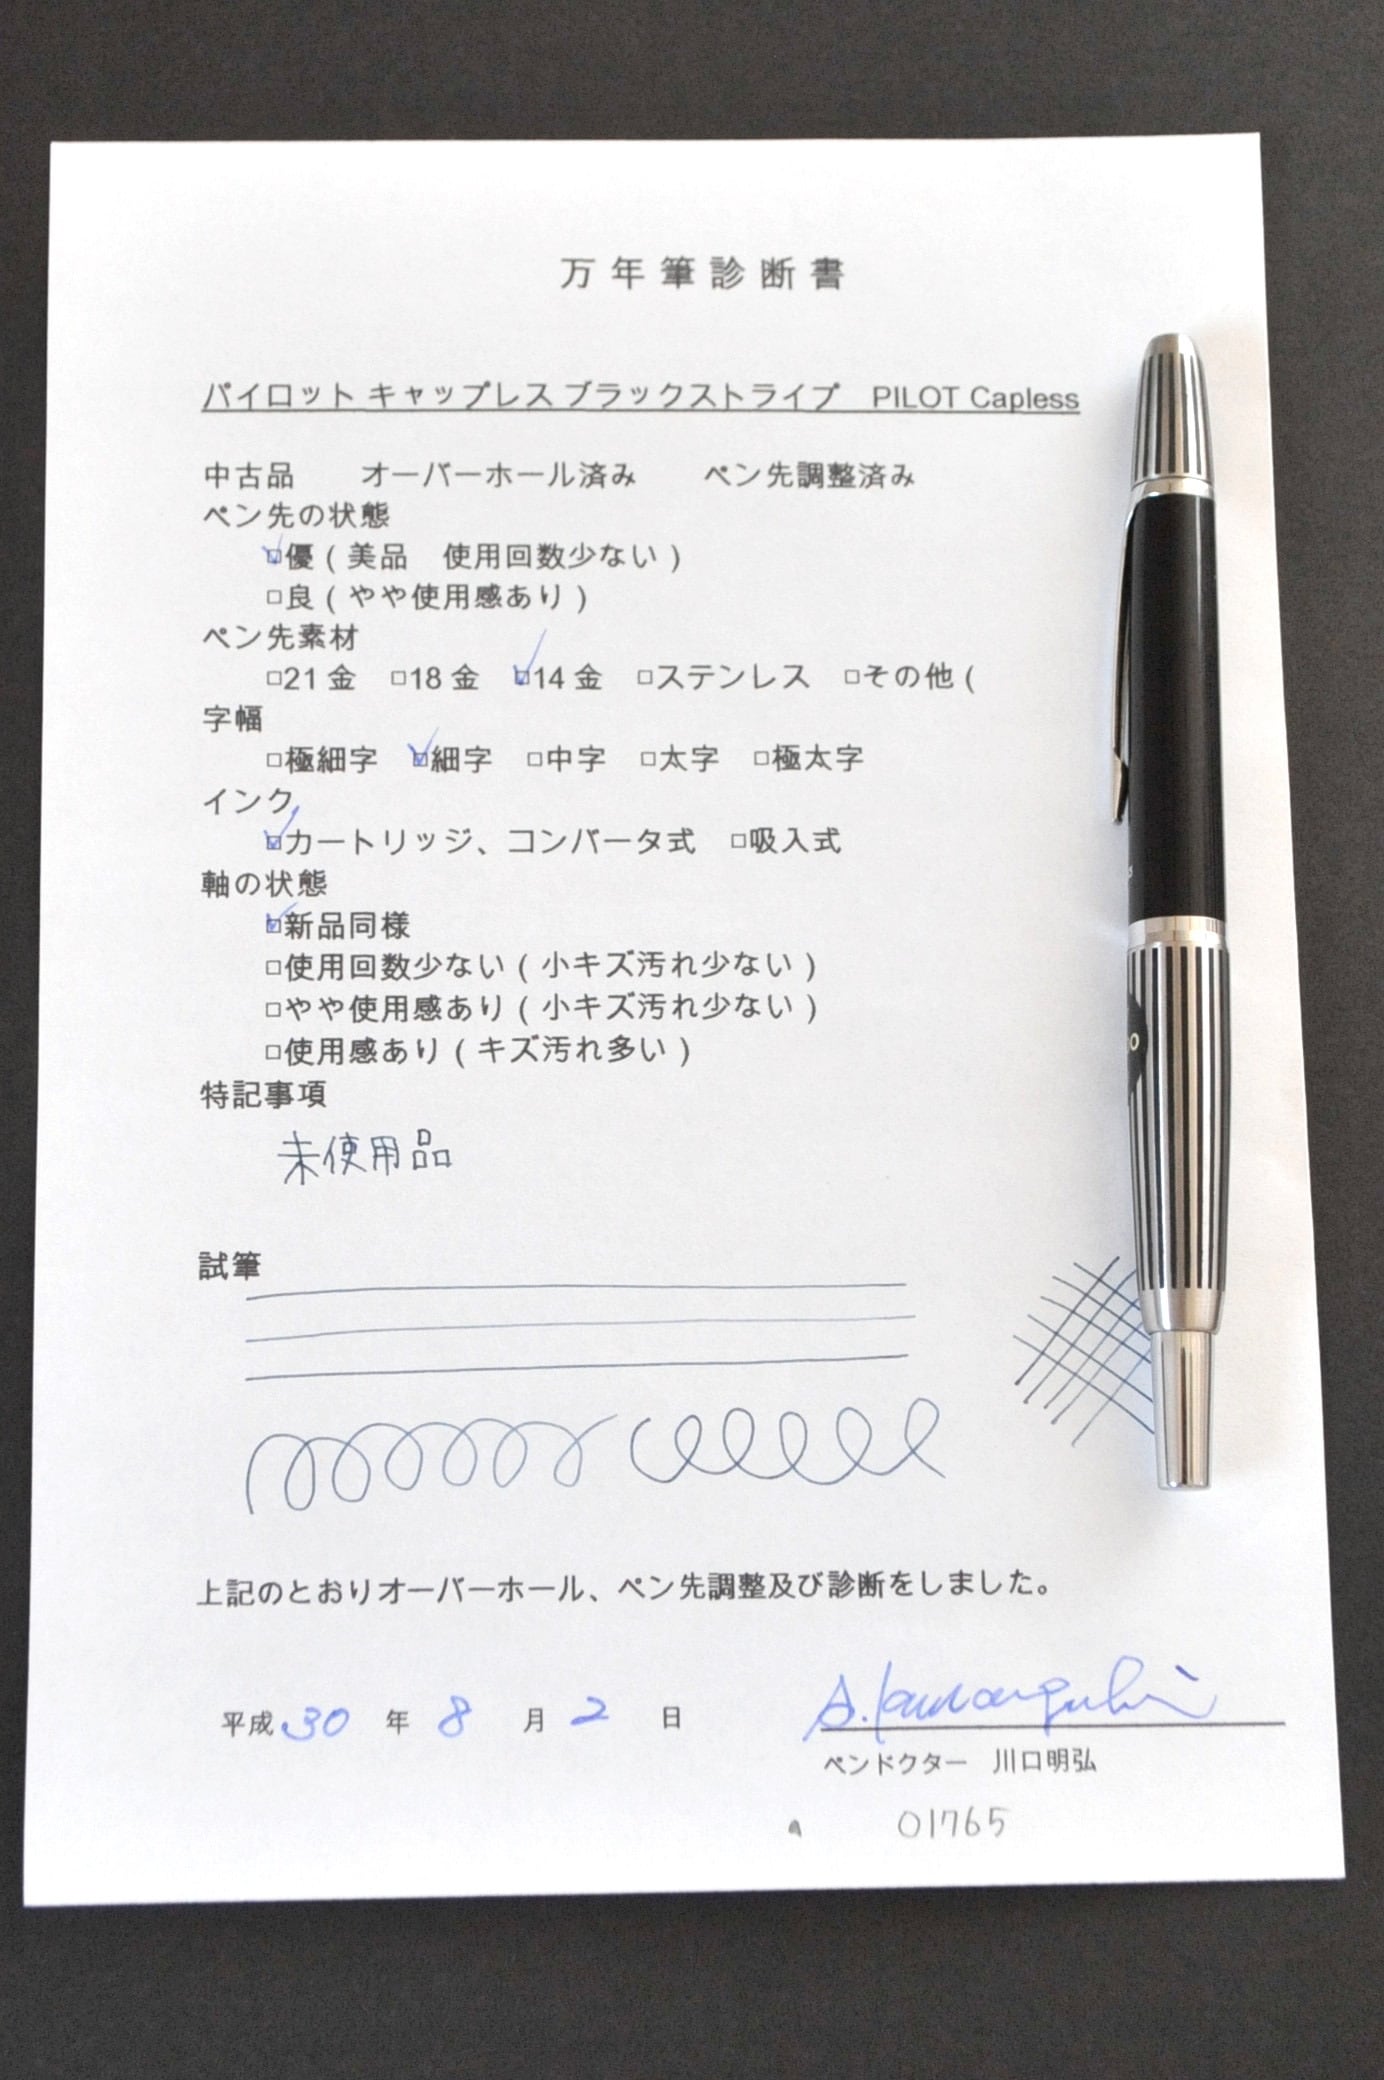 万年筆診断書
パイロット キャップレス ブラックストライプ　PILOT Capless
中古品　　オーバーホール済み　　ペン先調整済み
ペン先の状態
☑優（美品　使用回数少ない）
□良（やや使用感あり）
ペン先素材
□21金　□18金　☑14金　□ステンレス　□その他（
字幅
□極細字　☑細字　□中字　□太字　□極太字
インク
☑カートリッジ、コンバータ式　□吸入式
軸の状態
☑新品同様
□使用回数少ない（小キズ汚れ少ない）
□やや使用感あり（小キズ汚れ少ない）
□使用感あり（キズ汚れ多い）
特記事項
未使用品
試筆
上記のとおりオーバーホール、ペン先調整及び診断をしました。
平成30年8月2日
A. Kawaguchi
ペンドクター　川口明弘
01765